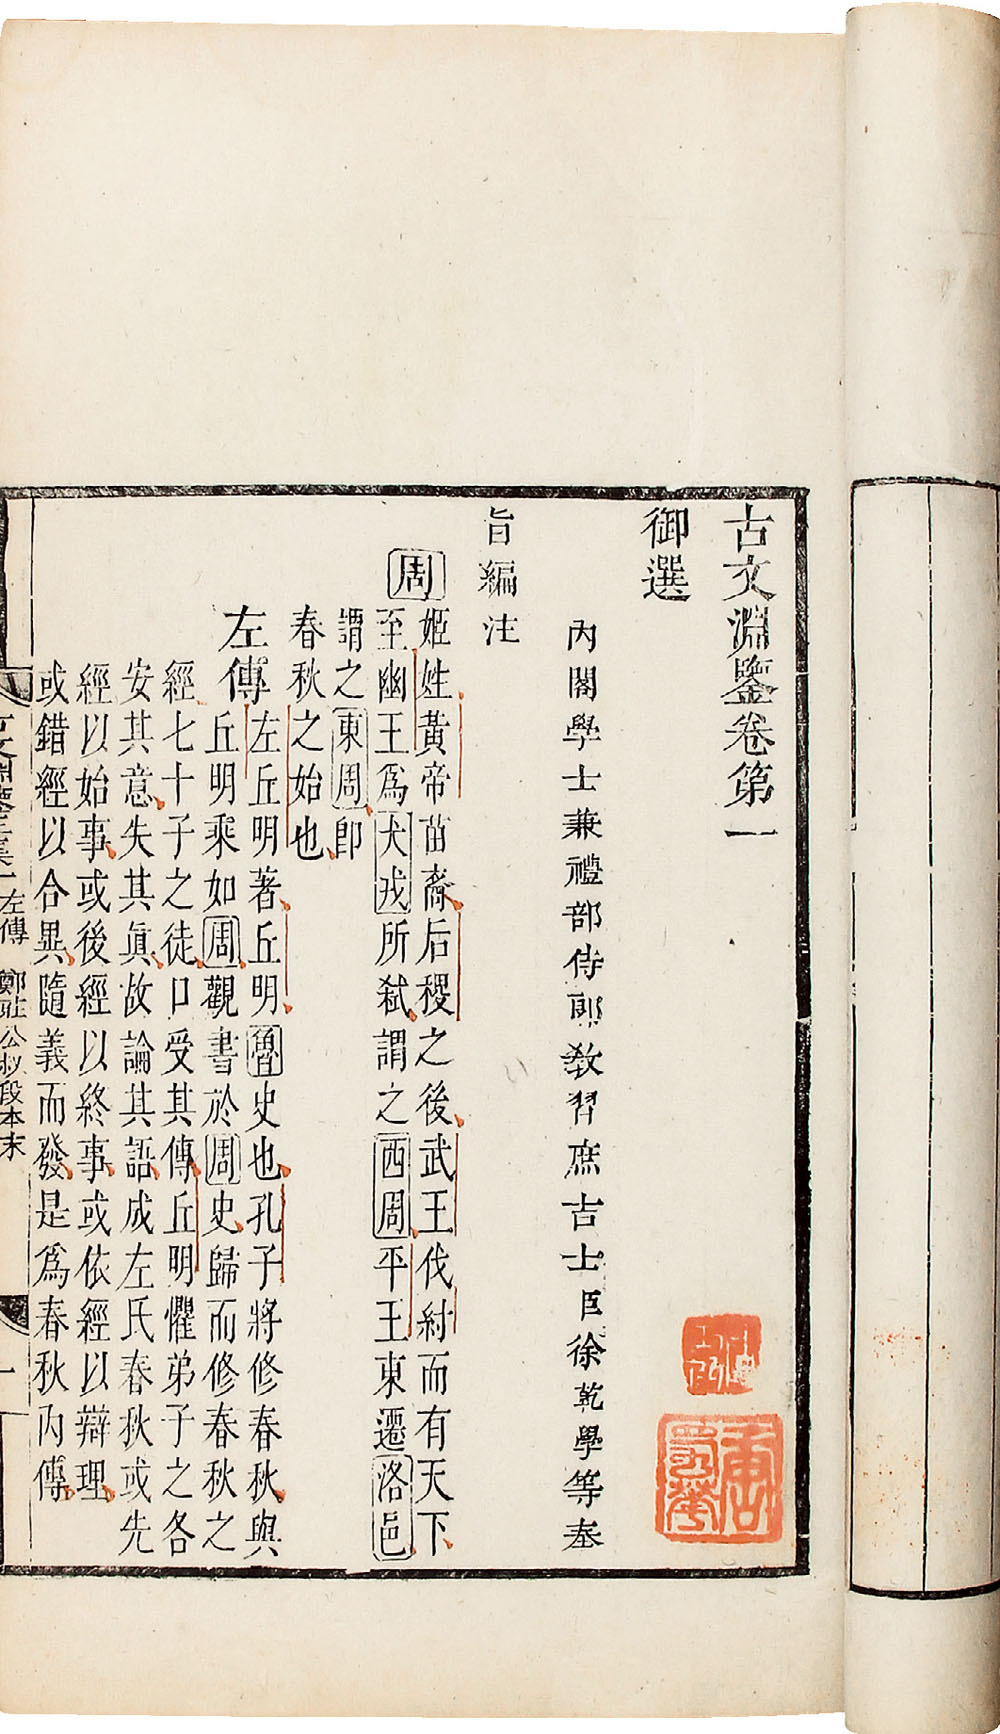 古文淵鑒卷第一
御選
內閣學士兼禮部侍郎教習庶吉士臣徐乾學等奉
旨編注
周
姬姓黃帝苗裔后稷之後武王伐紂而有天下
至幽王為犬戎所弒謂之西周平王東遷洛邑
謂之東周即
春秋之始也
左傳
左丘明著丘明魯史也孔子將修春秋與
丘明乘如周觀書於周史歸而修春秋之
經七十子之徒口受其傳丘明懼弟子之各
安其意失其真故論其語成左氏春秋或先
經以始事或後經以終事或依經以辯理
或錯經以合異隨義而發是為春秋內傳
左傳 鄭莊公叔段本末
一